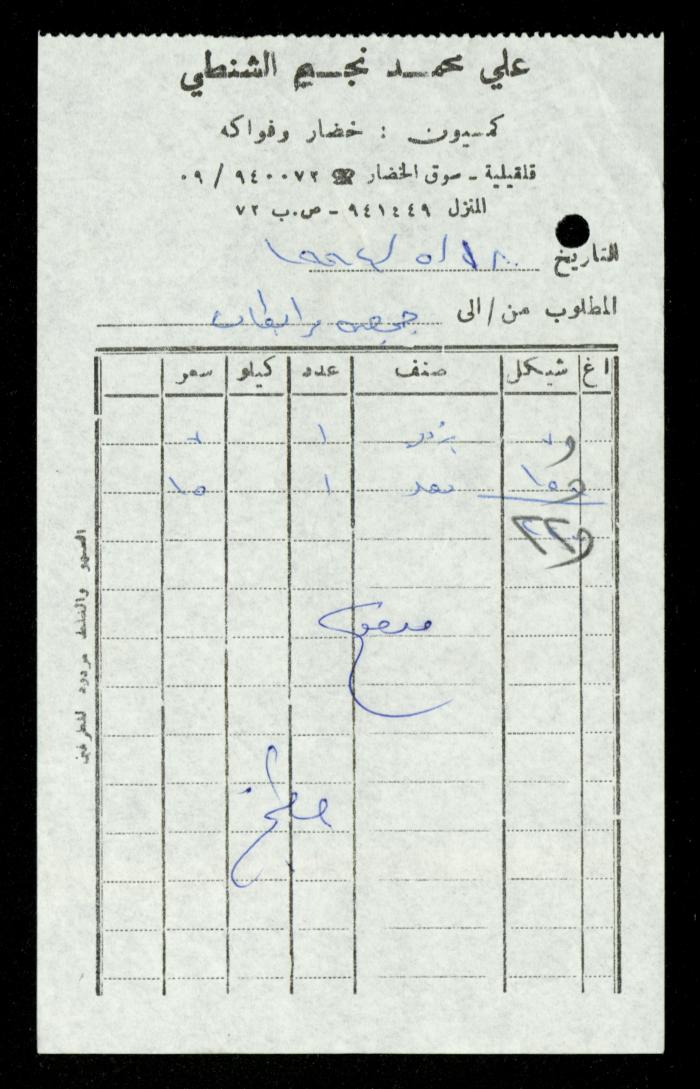 علي محمد نجم الشنطي
كمسيون : خضار وفواكه
قلقيلية - سوق الخضار ☎ ٩٤٠٠٧٢ / ٠٩
المنزل ٩٤١٤٤٩ - ص.ب ٧٢
التاريخ ١٨/٥/١٩٩٤
المطلوب من/الى
اغ شيكل صنف عدد كيلو سعر
٧ ١ ٧
١٥ ١ ١٥
٢٢
مدفوع
السهو والغلط مردود للطرفين